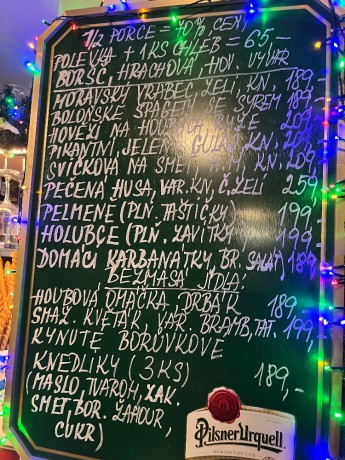 1/2 PORCE = 70% CEN
POLÉVKA + 1KS CHLÉB = 65,-
BORŠČ, HRACHOVÁ, HOV. VÝVAR
MORAVSKÝ VRABEC, ZELÍ, KN. 189,-
BOLOŇSKÉ ŠPAGETY SE SÝREM 189,-
HOVĚZÍ NA HOUBÁCH, RÝŽE 209,-
PIKANTNÍ JELENÍ GULÁŠ, KN.
SVÍČKOVÁ NA SMET., KN. 209,-
PEČENÁ HUSA, VAR. KN, Č. ZELÍ 259,-
PELMENĚ (PLN. TAŠTIČKY) 199,-
HOLUBCE (PLN. ZAVITKY) 199,-
DOMÁCÍ KARBANÁTKY, BR. SALÁT 189,-
BEZMASÁ JÍDLA:
HOUBOVÁ OMÁČKA, DRBÁK 189,-
SMAŽ. KVĚTÁK, VAR. BRAMB, TAT. 199,-
KYNUTÉ BORŮVKOVÉ
KNEDLÍKY (3KS) 189,-
(MÁSLO, TVAROH, ZAK.
SMET, BOR. ŽAHOUR,
CUKR)
Pilsner Urquell